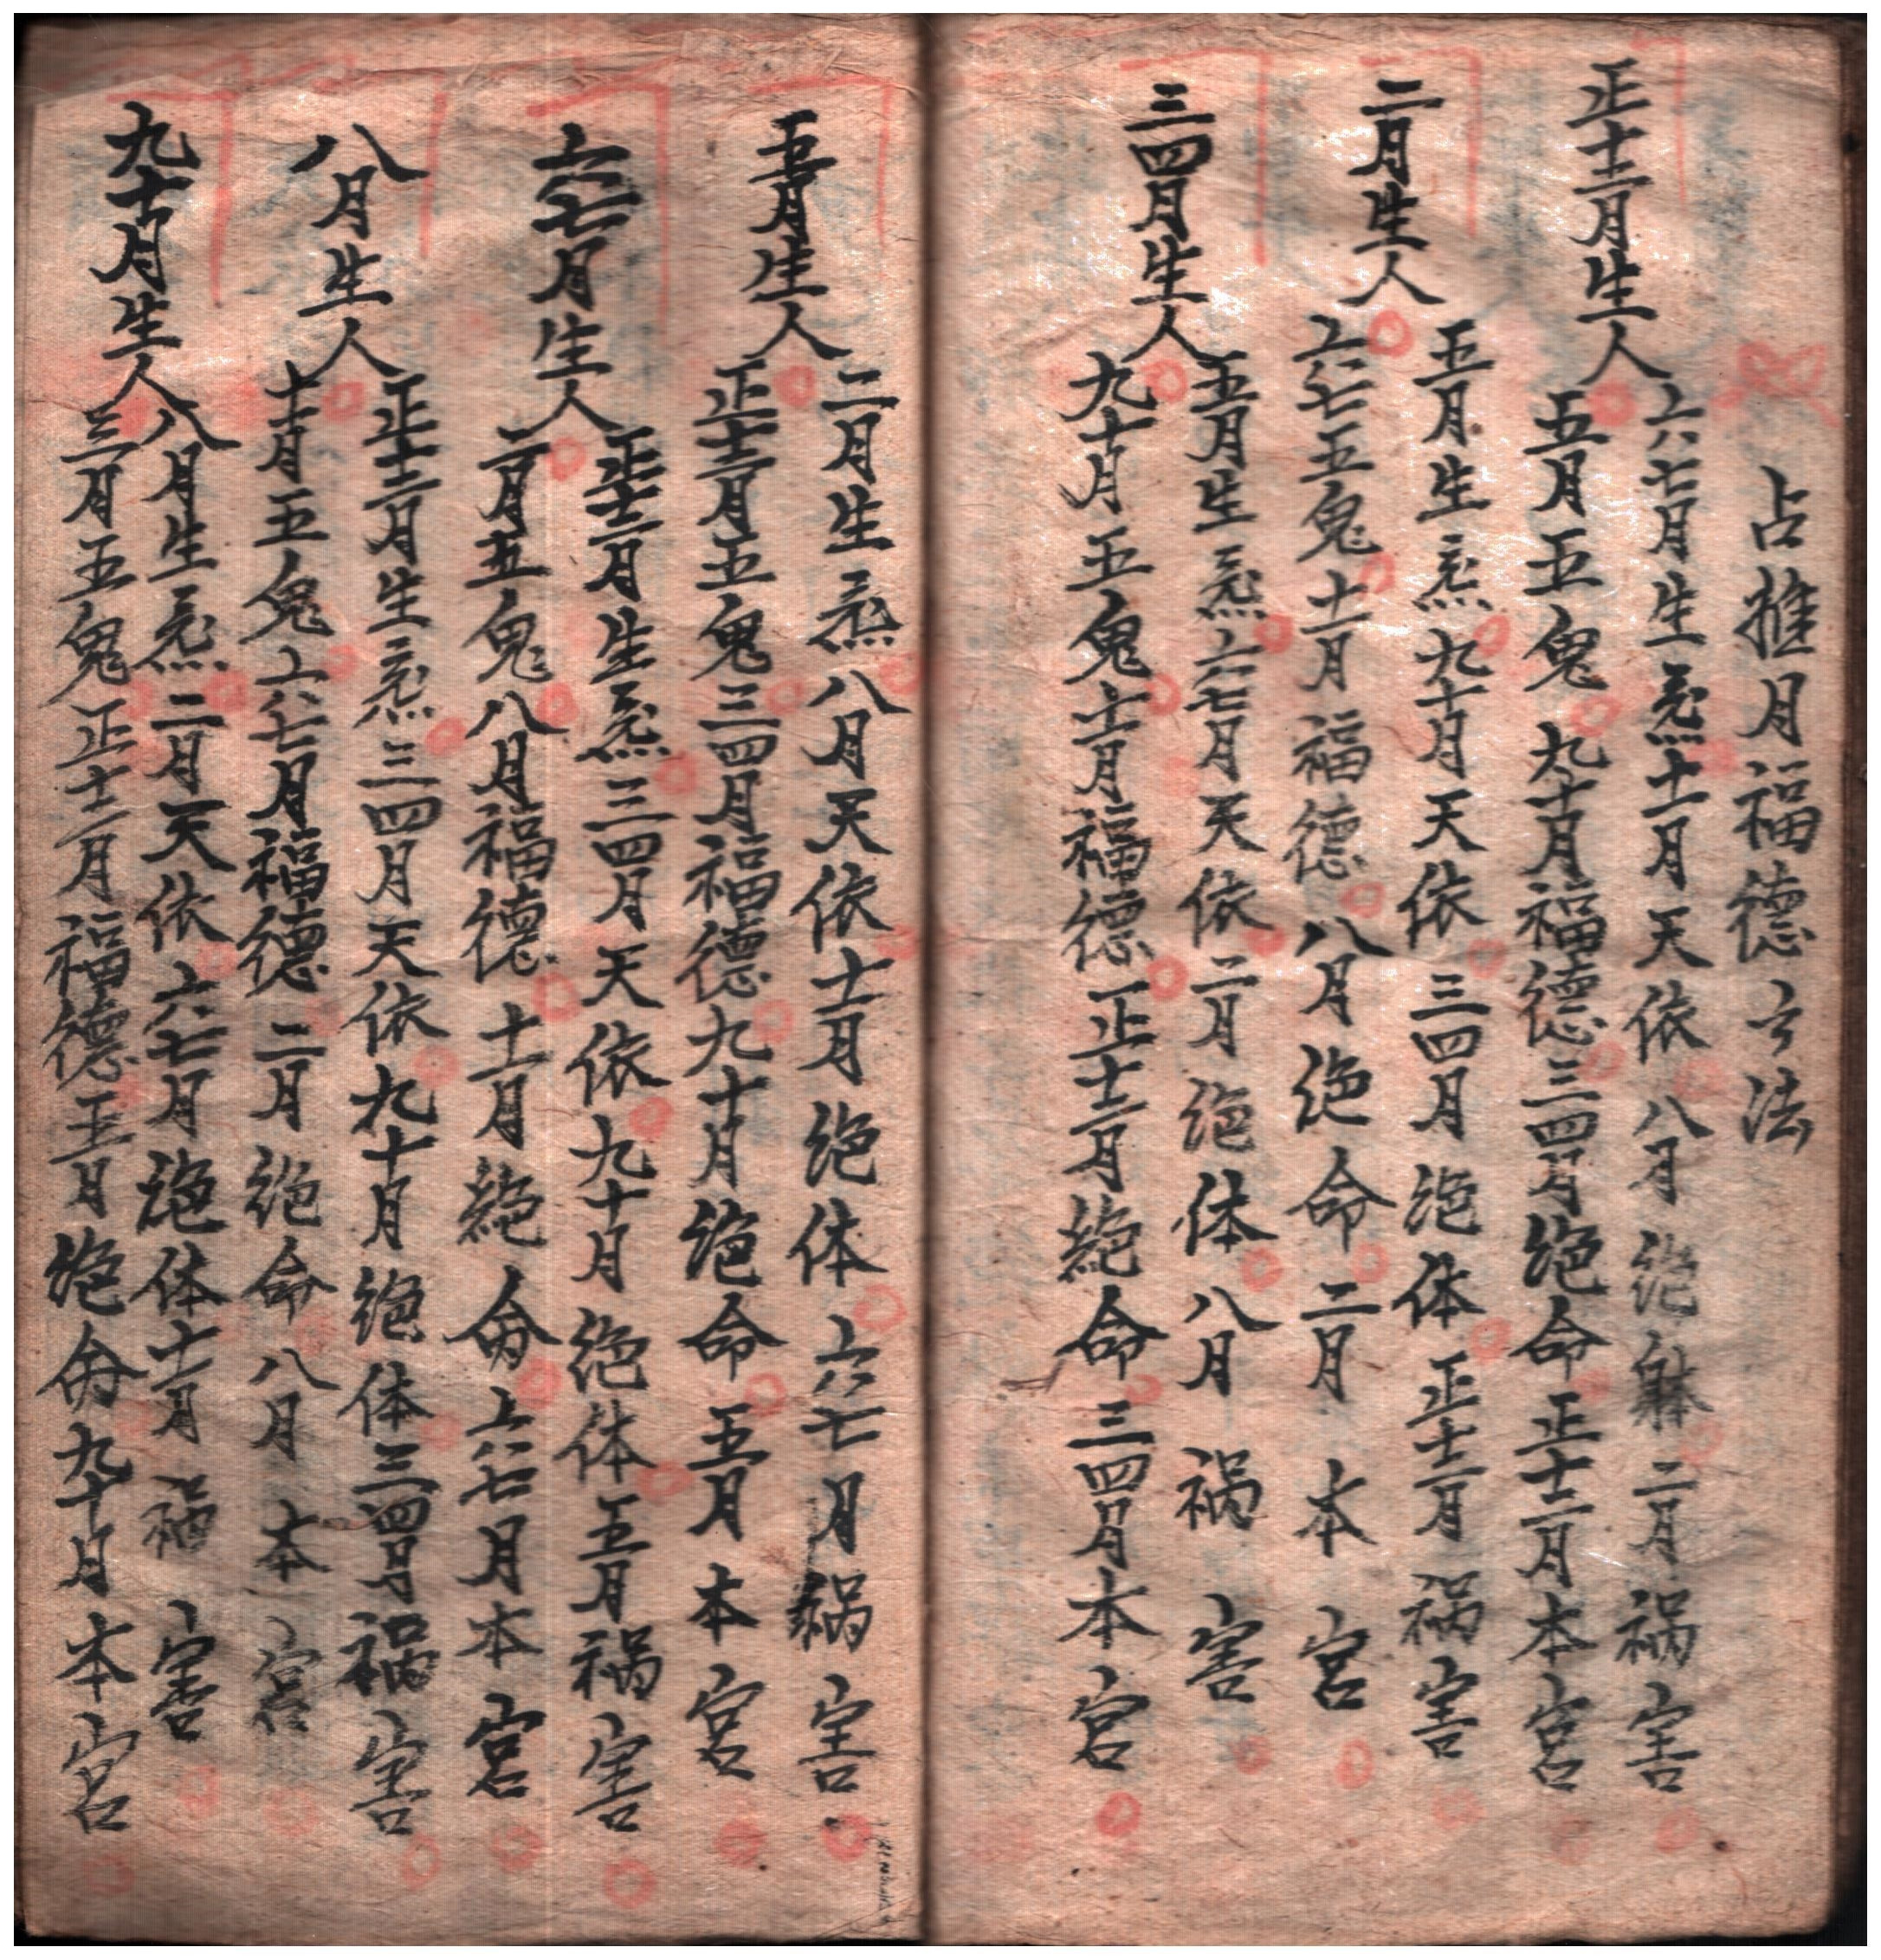 占推月福德之法
正十二月生人
六七月生炁十一月天依八月绝躰二月祸害
五月五鬼九十月福德三四月绝命正十二月本宫
二月生人
五月生炁九十月天依三四月绝体正十二月祸害
六七五鬼十一月福德八月绝命二月本宫
三四月生人
五月生炁六七月天依二月绝体八月祸害
九十月五鬼十一月福德正十二月絶命三四月本宫
五月生人
二月生炁八月天依十一月绝体六七月祸害
正十二月五鬼三四月福德九十月绝命五月本宫
六七月生人
正十二月生炁三四月天依九十月绝体五月祸害
二月五鬼八月福德十一月絶命六七月本宫
八月生人
正十二月生炁三四月天依九十月绝体三四月祸害
十一月五鬼六七月福德二月绝命八月本宫
九十月生人
八月生炁二月天依六七月绝体十一月祸害
三四月五鬼正十二月福德五月绝命九十月本宫